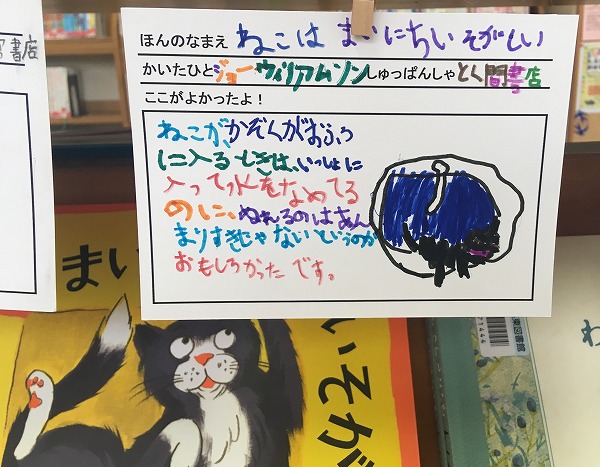 書店
ほんのなまえ ねこは まいにちいそがしい
かいたひと ジョー ウィリアムソン しゅっぱんしゃ とく間書店
ここがよかったよ！
ねこが、かぞくがおふろ
に入るときは、いっしょに
入って水をなめてる
のに、ぬれるのはあん
まりすきじゃないというのが
おもしろかったです。
まい
いそが
わ
図書館